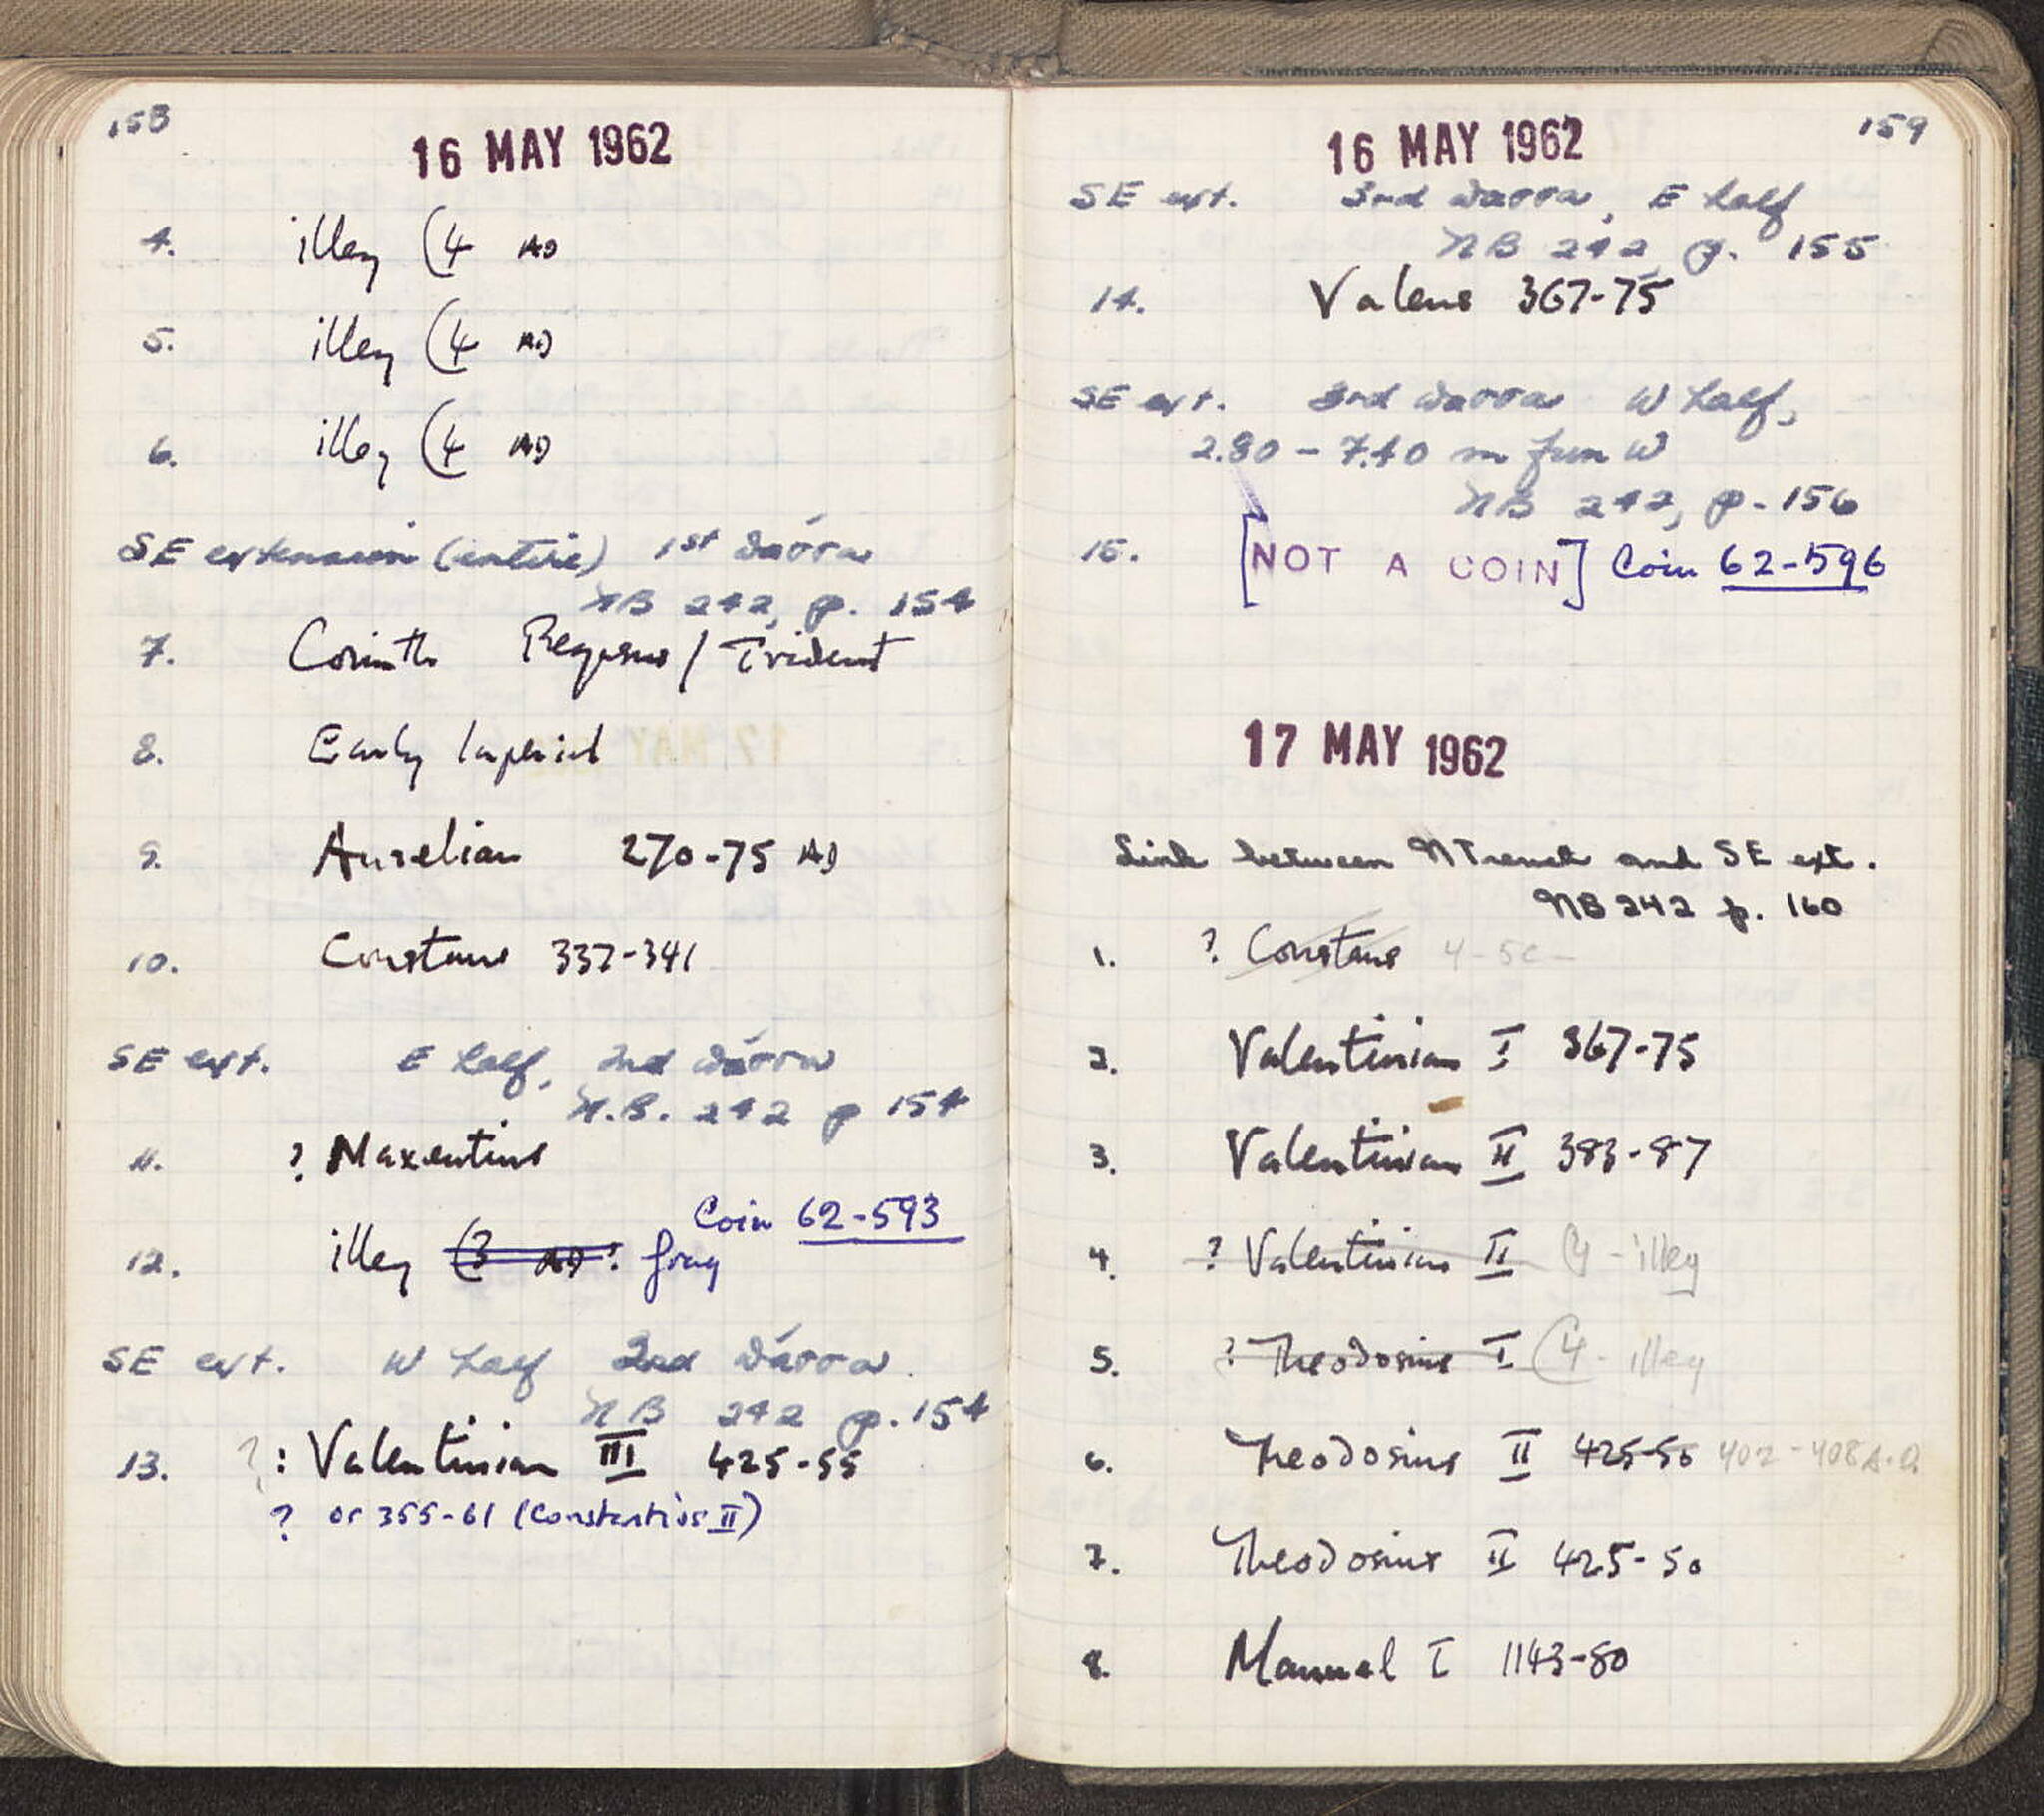 158
16 MAY 1962
4. illeg (4 AD
5. illeg (4 AD
6. illeg (4 AD
SE extension (entire) 1st wárra
NB 242, p. 154
7. Corinth Pegasus / Trident
8. Early Imperial
9. Aurelian 270-75 AD
10. Constans 337-341
SE ext. E half, 2nd wárra
N.B. 242 p 154
11. ? Maxentius
Coin 62-593
12. illeg (3 AD ? frag
SE ext. W half 2nd wárra.
NB 242 p. 154
13. ? : Valentinian III 425-55
? or 355-61 (Constantius II)
159
16 MAY 1962
SE ext. 3rd warra, E half
NB 242 p. 155
14. Valens 367-75
SE ext. 3rd warra W half,
2.80 - 7.40 m from W
NB 242, p. 156
15. [NOT A COIN] Coin 62-596
17 MAY 1962
Link between N Trench and SE ext.
NB 242 p. 160
1. ? Constans 4-5c-
2. Valentinian I 367-75
3. Valentinian II 383-87
4. ? Valentinian II (4 - illeg
5. ? Theodosius I (4 - illeg
6. Theodosius II 425-50 402-408 A.D.
7. Theodosius II 425-50
8. Manuel I 1143-80